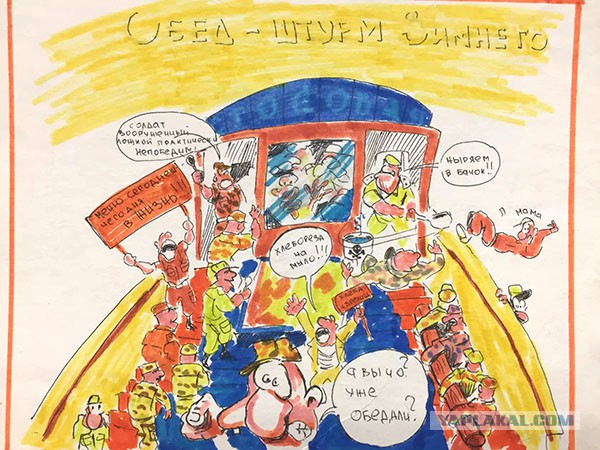 ОБЕД - ШТУРМ ЗИМНЕГО
СОЛДАТ
ВООРУЖЕННЫЙ
ЛОЖКОЙ ПРАКТИЧЕСКИ
НЕПОБЕДИМ!
НЫРЯЕМ
В БАЧОК!!
МЕНЮ СЕГОДНЯ
В ЖИЗНЬ!!!
МАМА
ХЛЕБОРЕЗА
НА
МЫЛО!!!
А ВЫ ЧО?
УЖЕ
ОБЕДАЛИ?
YAPLAKAL.COM